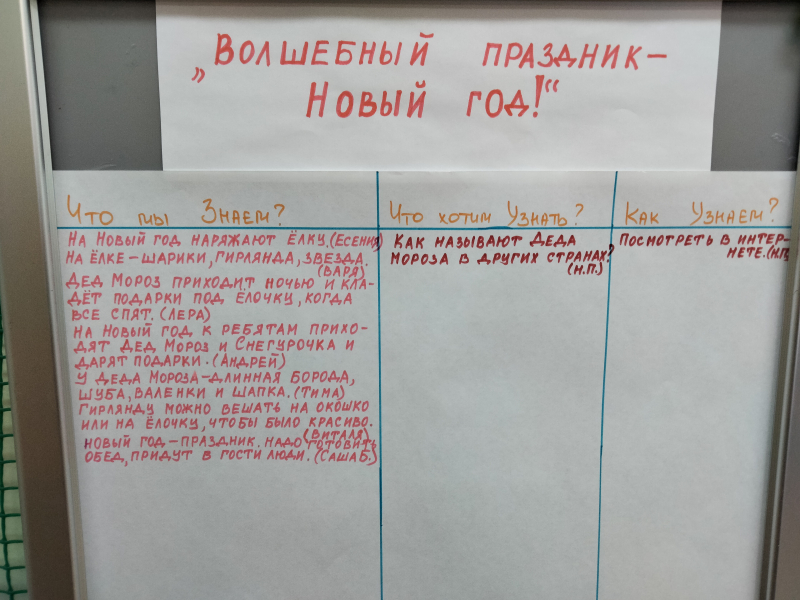 „Волшебный праздник –
Новый год!“
Что мы Знаем?
На Новый год наряжают ёлку.(Есения)
На ёлке – шарики, гирлянда, звезда.
(Варя)
Дед Мороз приходит ночью и кла-
дёт подарки под ёлочку, когда
все спят. (Лера)
На Новый год к ребятам прихо-
дят Дед Мороз и Снегурочка и
дарят подарки. (Андрей)
У Деда Мороза – длинная борода,
шуба, валенки и шапка. (Тима)
Гирлянду можно вешать на окошко
или на ёлочку, чтобы было красиво.
(Виталя)
Новый год – праздник. Надо готовить
обед, придут в гости люди. (Саша Б.)
Что хотим Узнать?
Как называют Деда
Мороза в других странах?
(Н.П.)
Как Узнаем?
Посмотреть в интер-
нете.(Н.П.